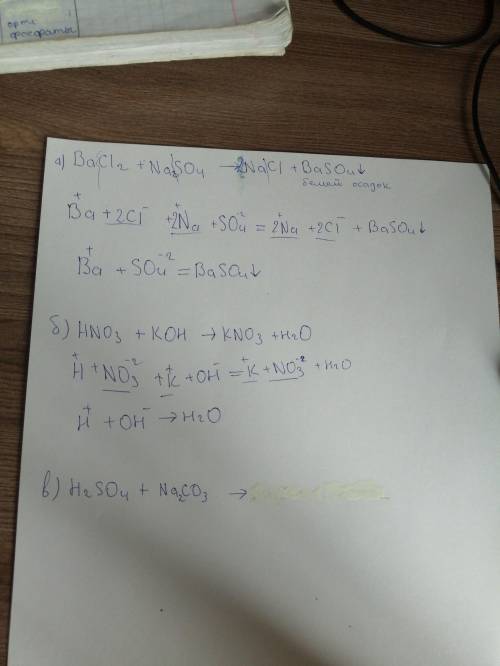 орто
фосфаты
а) BaCl2 + Na2SO4 → 2NaCl + BaSO4↓
белый осадок
Ba⁺ + 2Cl⁻ + 2Na⁺ + SO4⁻² = 2Na⁺ + 2Cl⁻ + BaSO4↓
Ba⁺ + SO4⁻² = BaSO4↓
б) HNO3 + KOH → KNO3 + H2O
H⁺ + NO3⁻² + K⁺ + OH⁻ = K⁺ + NO3⁻² + H2O
H⁺ + OH⁻ → H2O
в) H2SO4 + Na2CO3 →